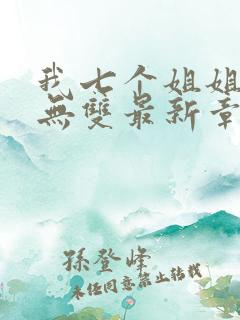 我七个姐姐
無雙最新章
孫登峰
未经同意禁止转载